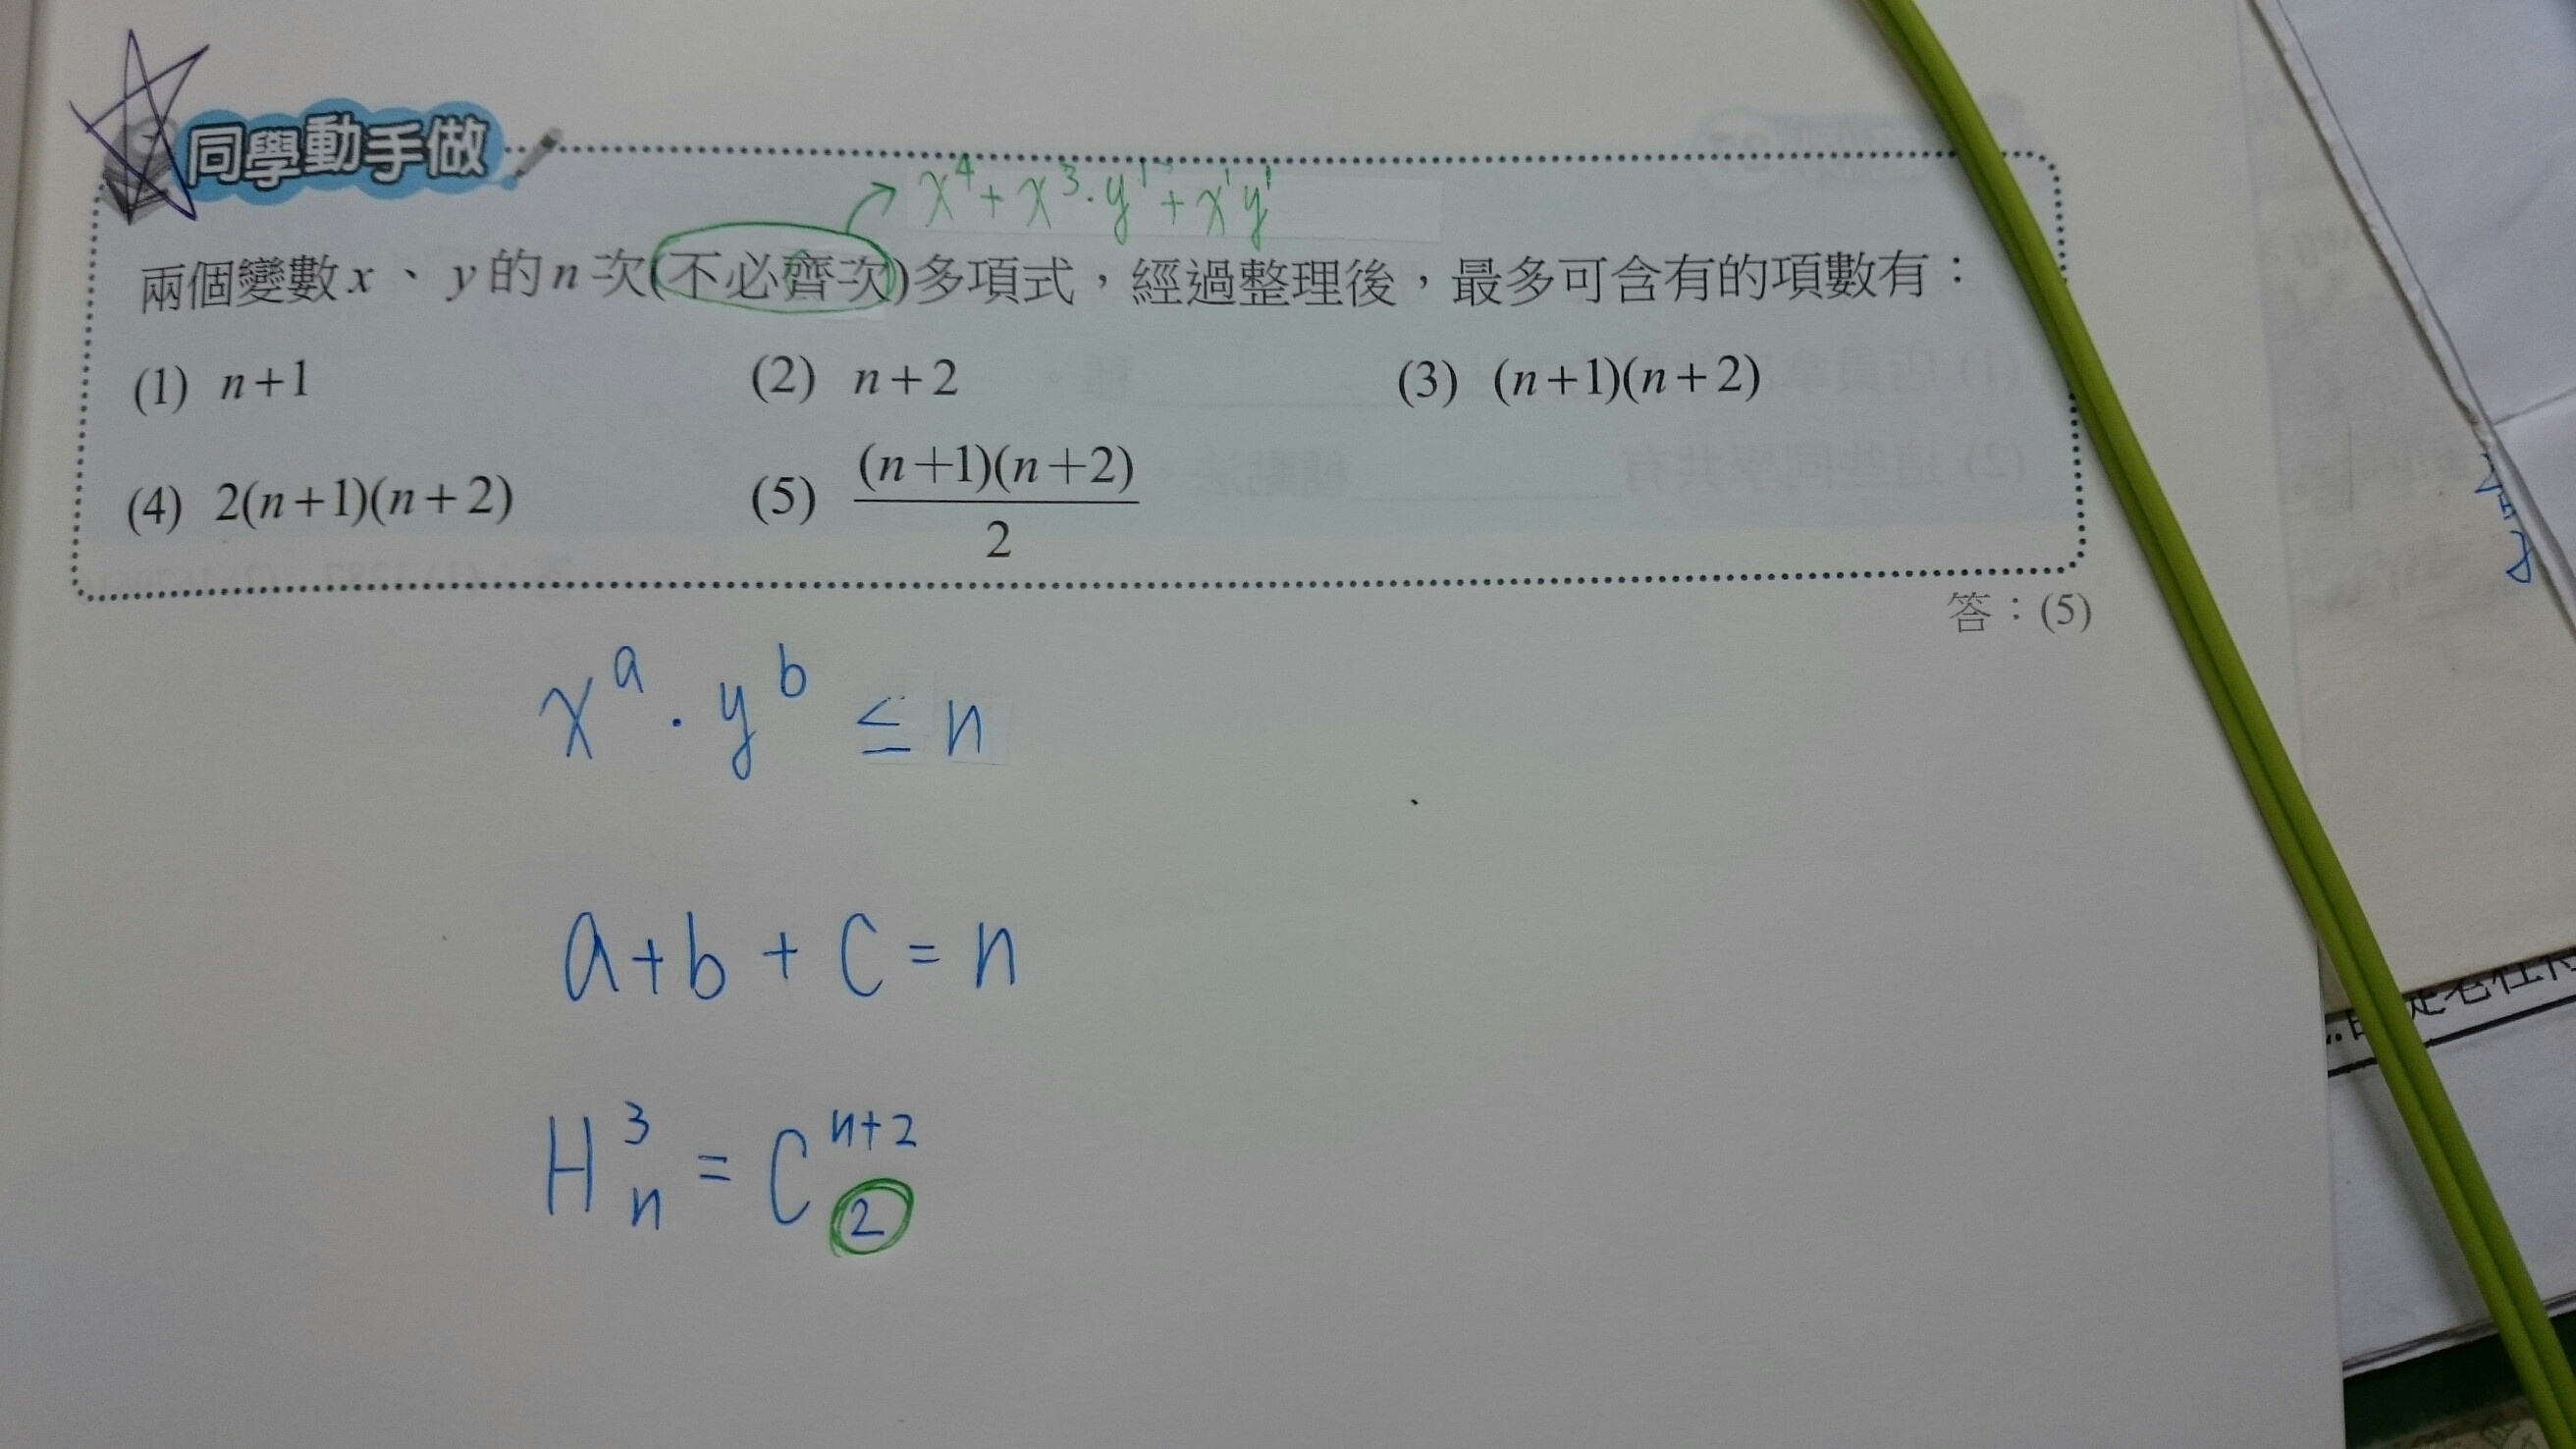 同學動手做
x⁴ + x³·y¹ + x¹y¹
兩個變數 x、y 的 n 次(不必齊次)多項式,經過整理後,最多可含有的項數有:
(1) n+1 (2) n+2 (3) (n+1)(n+2)
(4) 2(n+1)(n+2) (5) (n+1)(n+2)/2
答:(5)
xᵃ · yᵇ ≤ n
a+b+c=n
H³ₙ = Cⁿ⁺²₂